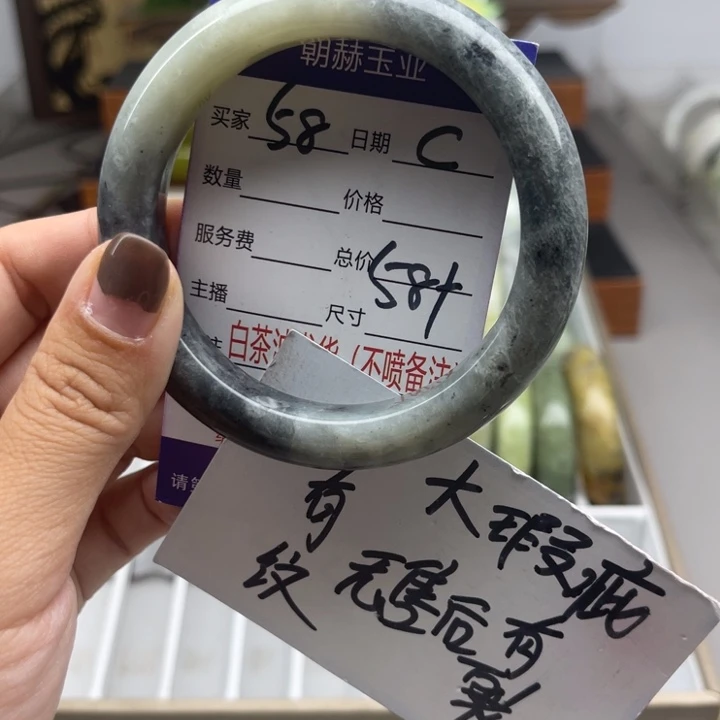 朝赫玉业
买家 58 日期 C
数量 价格
服务费 总价
584
主播 尺寸
白茶 (不喷备注
请
有 大瑕疵
纹 无售后有